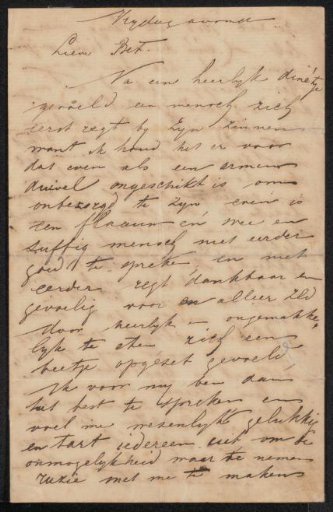 Vrijdag avond
Lieve Bet.
Na een heerlijk dinétje
gevoeld een mensch zich
eerst regt bij zijn zinnen
want ik houd het er voor
dat even als een arme
duivel ongeschikt is om
onbezorgd te zijn even is
een flaauw en wee en
suffig mensch niet eerder
goed te spreken en niet
eerder regt dankbaar en
gevoelig voor en
Voor heerlijk en ongemakke-
lijk te eten zich een
beetje opgezet gevoeld
Ik voor mij ben dan
het best te spreken en
voel me wezenlijk gelukkig
en tart iedereen uit om de
onmogelijkheid waar te nemen
ruzie met me te maken